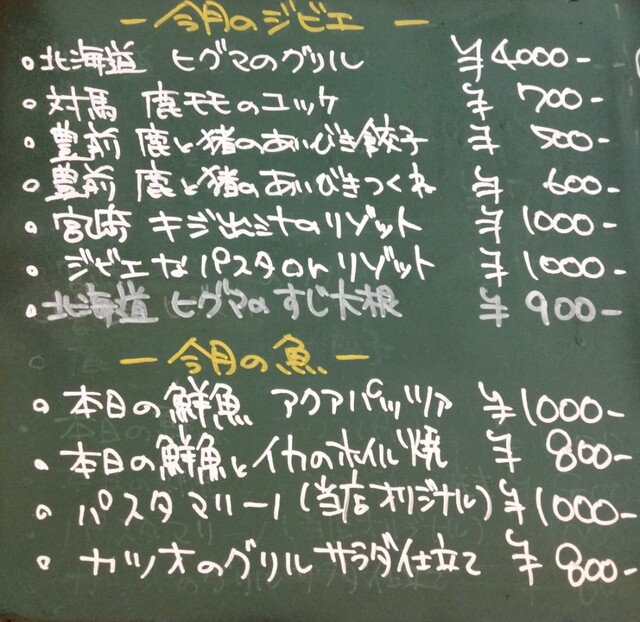 ー 今月のジビエ ー
• 北海道 ヒグマのグリル ¥4000-
• 対馬 鹿モモのユッケ ¥ 700-
• 豊前 鹿と猪のあいびき餃子 ¥ 500-
• 豊前 鹿と猪のあいびきつくね ¥ 600-
• 宮崎 キジ出シナのリゾット ¥ 1000-
• ジビエなパスタ or リゾット ¥ 1000-
• 北海道 ヒグマのすじ大根 ¥ 900-
ー 今月の魚 ー
• 本日の鮮魚 アクアパッツァ ¥1000-
• 本日の鮮魚とイカのホイル焼 ¥ 800-
• パスタマリーノ(当店オリジナル) ¥1000-
• カツオのグリル サラダ仕立て ¥ 800-